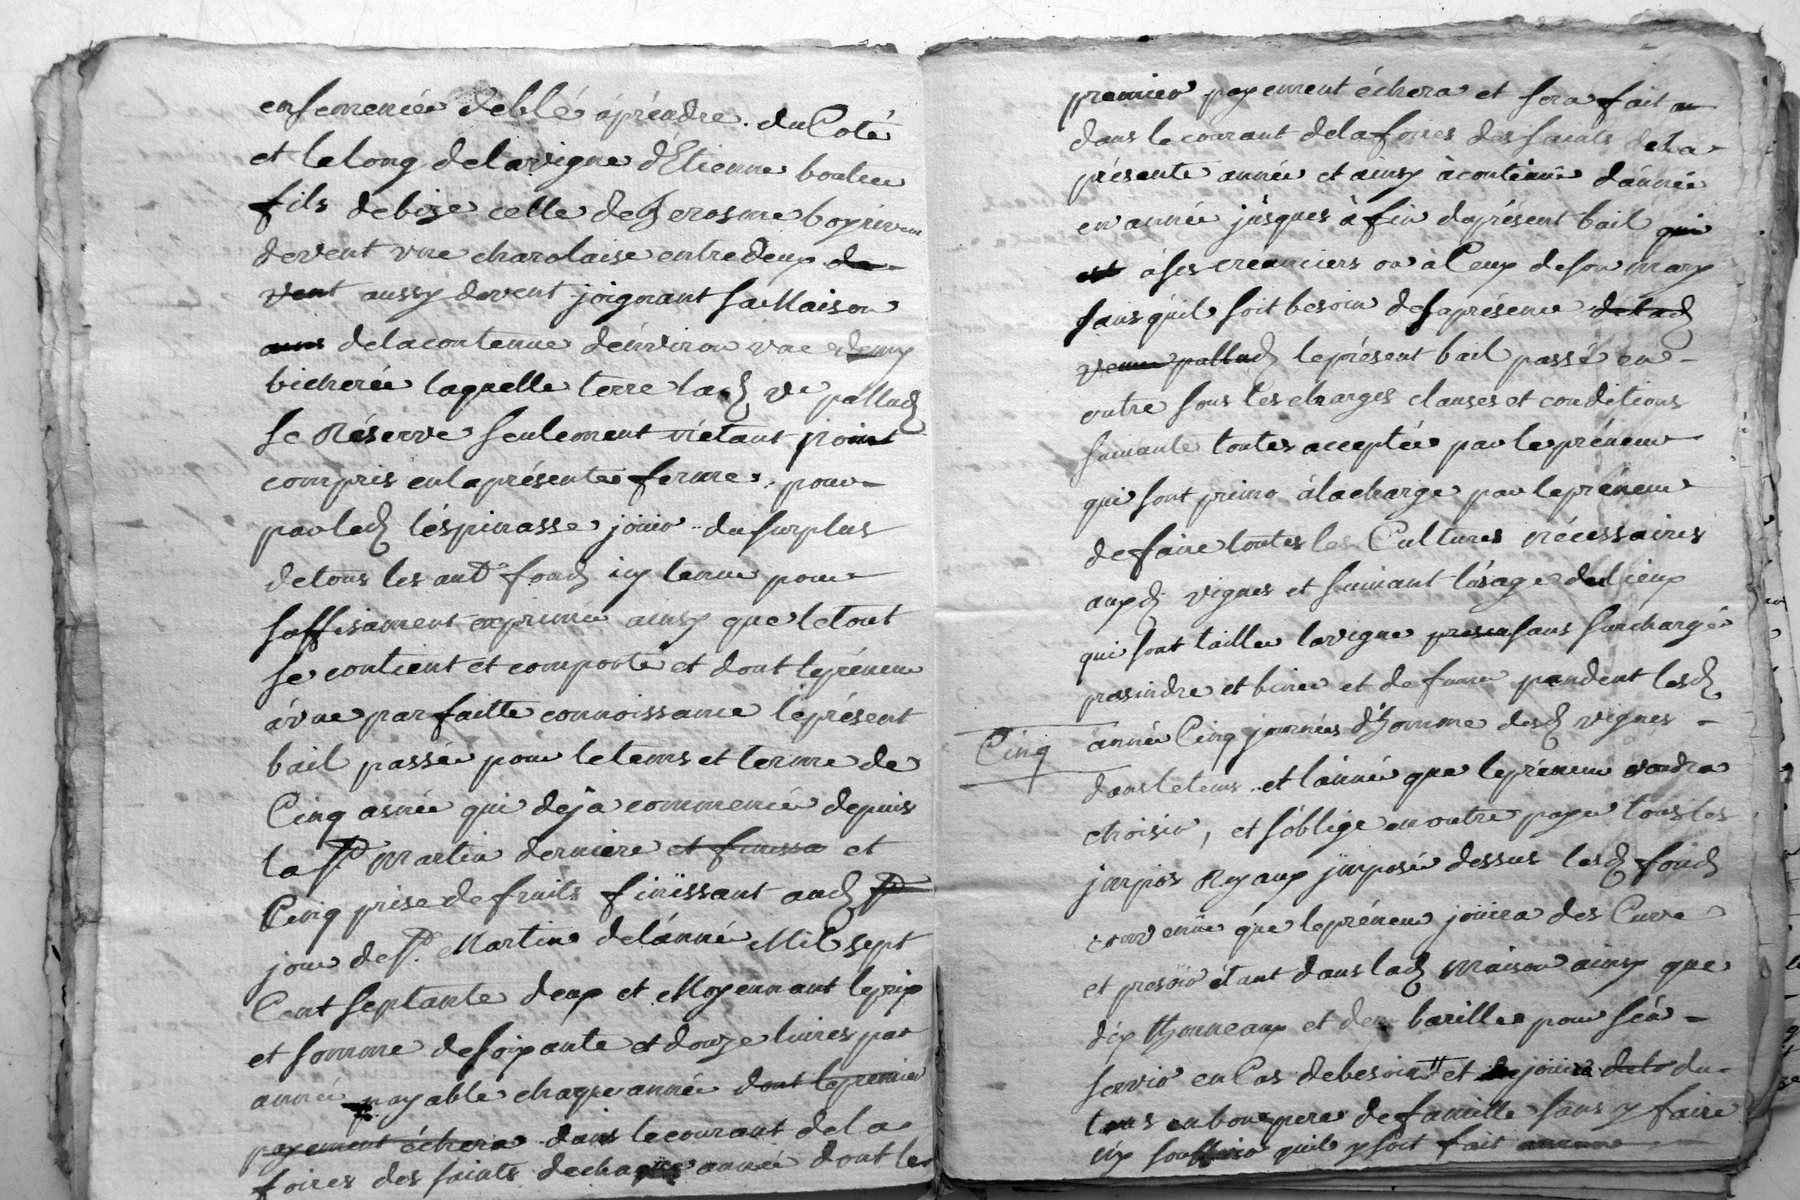 ensemencée deblé àpréndre du Coté
et lelong delavigne d'Etienne
fils debize celle de Jerosme
devent vne charolaise entredeux de
vent aussy devent joignant sa Maison
delacontenue d'énviron vne demy
bicherée laquelle terre lad. ve pallud
se Réserve seulement n'etant point
compris enlaprésente ferme, pour
parled. léspinasse jouir du surplus
detous les aut. fond. icy tenue pour
suffisament exprimée ainsy que letout
se contient et comporte et dont lepréneur
à vne parfaitte connoissance leprésent
bail passée pour letems et terme de
Cinq année qui déja commencée depuis
la St. Martin derniere et finissa et
Cinq prise defruits finissant aud. St
jour de St. Martin delánné Mil sept
Cent septante deux et Moyennant leprix
et somme desoixante et douze livres par
année payable chaque année dont lepremier
payement échera dans lecourant dela
foires des saints dechaque année dont le
premier payement échera et sera fait au
dans lecourant delafoires des saints dela
présente année et ainsy àcontinué dánnée
en année jusques à fin duprésent bail qui
est àses creanciers ou àCeux deson mary
sans quil soit besoin desaprésence delad.
veuve pallud. leprésent bail passé en
outre sous les charges clauses et conditions
suivante toutes acceptée par lepréneur
qui sont primo àlacharge par lepréneur
defaire toutes les Cultures nécessaires
auxd. vignes et suivant lúsage deslieux
qui sont tailler lavigne sans surchargé
et biner et de pendent lesd.
Cinq
année Cinq journées d'homme desd. vignes
dansletems et lánnée que lepréneur voudra
choisir, et s'oblige enoutre payer tous les
jmpos Royaux jmposée dessus lesd. fond.
convenüe que lepréneur joüira des Cuve
et présoir étant dans lad. Maison ainsy que
dix thonneaux et barilles pour sén
servir en Cas debesoin et jouira du
tous enbonepere defamille sans y faire
ny souffrir quil ysoit fait aucune